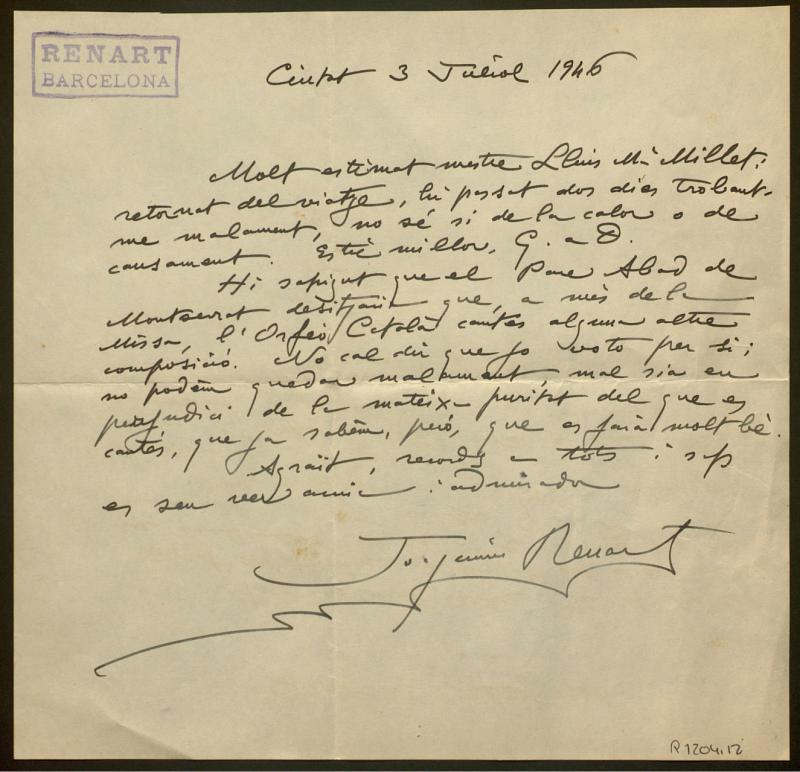 RENART
BARCELONA
Ciutat 3 Juliol 1946
Molt estimat mestre Lluis Mª Millet:
retornat del viatge, hi passat dos dies trobant-
me malament, no sé si de la calor o de
cansament. Estic millor, G. a D.
Hi sapigut que el Pare Abad de
Montserrat desitjaria que, a més de la
Missa, l'Orfeó Català cantés alguna altre
composició. No cal dir que jo voto per si;
no podém quedar malament, mal sia en
perjudici de la mateixa puritat del que es
cantés, que ja sabém, peró, que es farà molt bé.
Agraït, records a tots i sap
es seu ver amic i admirador
Joaquim Renart
R 1204.12